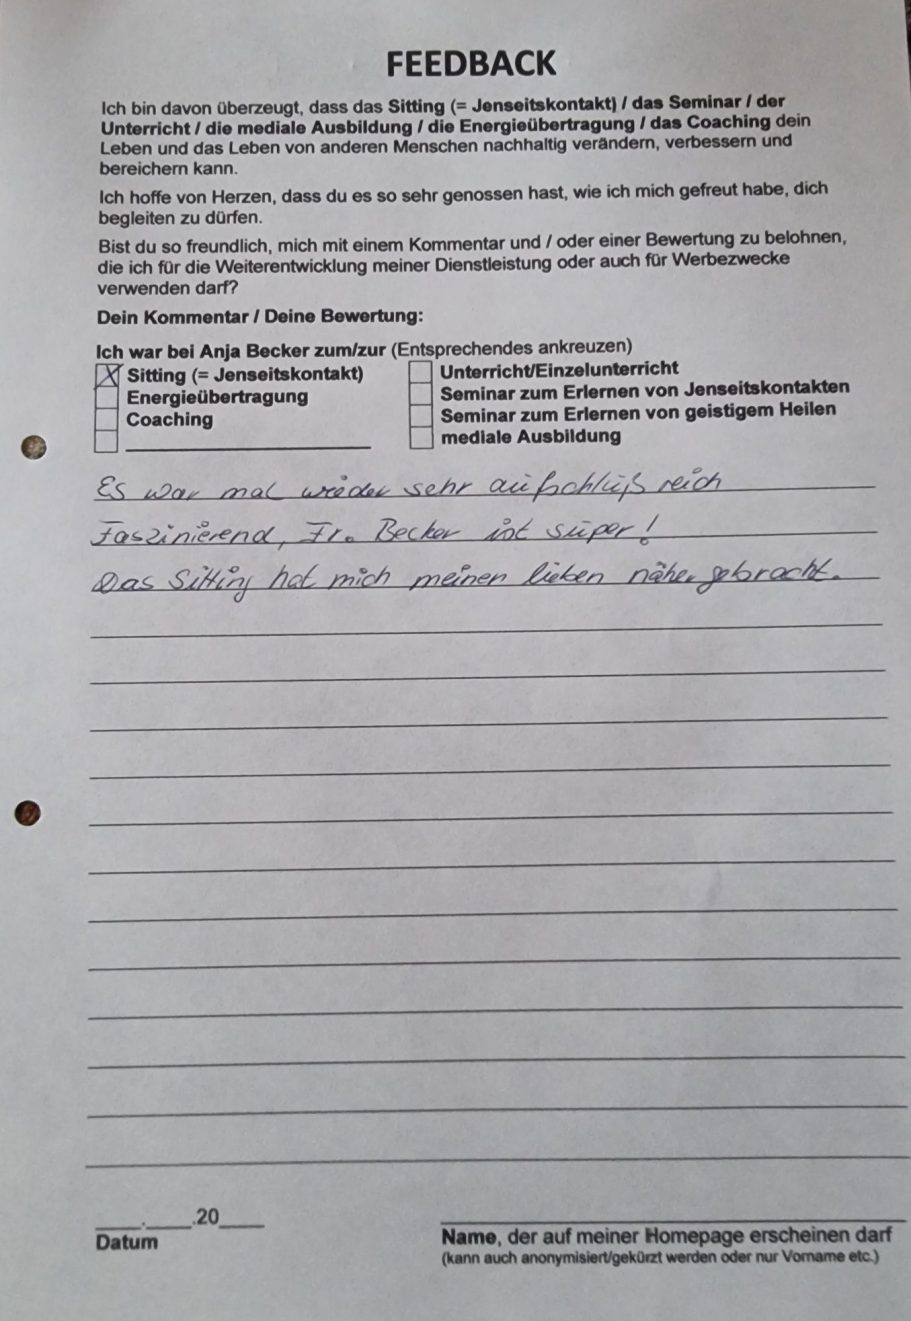 FEEDBACK
Ich bin davon überzeugt, dass das Sitting (= Jenseitskontakt) / das Seminar / der
Unterricht / die mediale Ausbildung / die Energieübertragung / das Coaching dein
Leben und das Leben von anderen Menschen nachhaltig verändern, verbessern und
bereichern kann.
Ich hoffe von Herzen, dass du es so sehr genossen hast, wie ich mich gefreut habe, dich
begleiten zu dürfen.
Bist du so freundlich, mich mit einem Kommentar und / oder einer Bewertung zu belohnen,
die ich für die Weiterentwicklung meiner Dienstleistung oder auch für Werbezwecke
verwenden darf?
Dein Kommentar / Deine Bewertung:
Ich war bei Anja Becker zum/zur (Entsprechendes ankreuzen)
X Sitting (= Jenseitskontakt)
Energieübertragung
Coaching
Unterricht/Einzelunterricht
Seminar zum Erlernen von Jenseitskontakten
Seminar zum Erlernen von geistigem Heilen
mediale Ausbildung
Es war mal wieder sehr aufschlußreich
Faszinierend, Fr. Becker ist super!
Das Sitting hat mich meinen lieben näher gebracht.
____.____.20____
Datum
Name, der auf meiner Homepage erscheinen darf
(kann auch anonymisiert/gekürzt werden oder nur Vorname etc.)